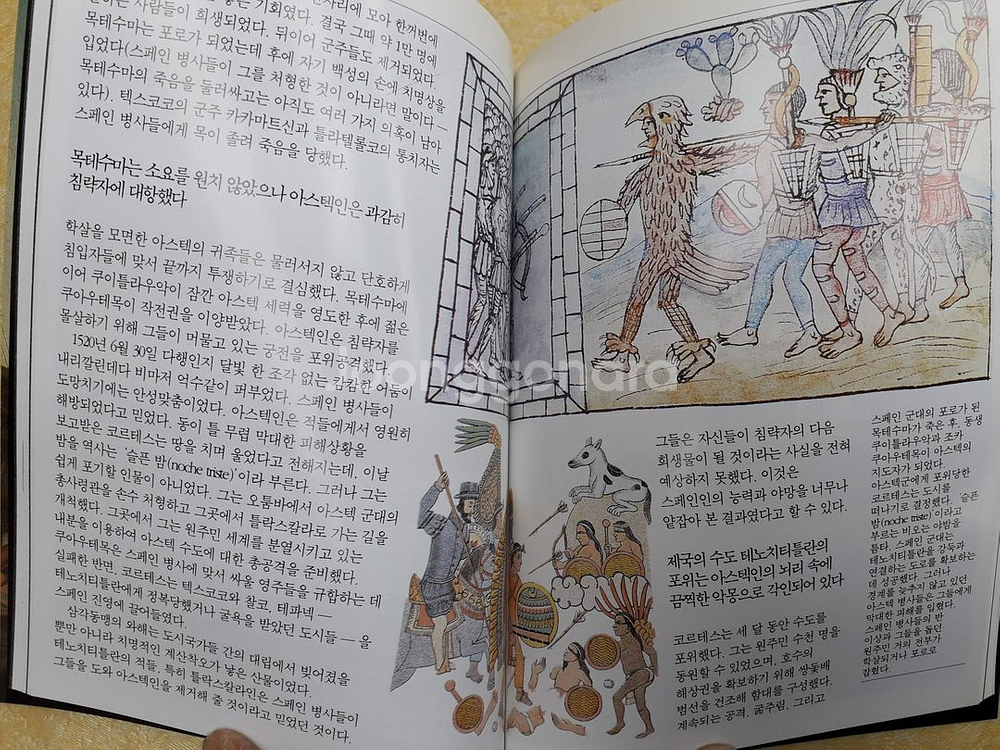 모아 한꺼번에
사람들이 희생되었다. 뒤이어 군주들도 제거되었다.
목테수마는 포로가 되었는데 후에 자기 백성의 손에 치명상을
입었다(스페인 병사들이 그를 처형한 것이 아니라면 말이다 —
목테수마의 죽음을 둘러싸고는 아직도 여러 가지 의혹이 남아
있다). 텍스코코의 군주 카카마트신과 틀라텔롤코의 통치자는
스페인 병사들에게 목이 졸려 죽음을 당했다.
목테수마는 소요를 원치 않았으나 아스텍인은 과감히
침략자에 대항했다
학살을 모면한 아스텍의 귀족들은 물러서지 않고 단호하게
침입자들에 맞서 끝까지 투쟁하기로 결심했다. 목테수마에
이어 쿠이틀라우악이 잠깐 아스텍 세력을 영도한 후에 젊은
쿠아우테목이 작전권을 이양받았다. 아스텍인은 침략자를
몰살하기 위해 그들이 머물고 있는 궁전을 포위공격했다.
1520년 6월 30일 다행인지 달빛 한 조각 없는 캄캄한 어둠이
내리깔린데다 비마저 억수같이 퍼부었다. 스페인 병사들이
도망치기에는 안성맞춤이었다. 아스텍인은 적들에게서 영원히
해방되었다고 믿었다. 동이 틀 무렵 막대한 피해상황을
보고받은 코르테스는 땅을 치며 울었다고 전해지는데, 이날
밤을 역사는 '슬픈 밤(noche triste)'이라 부른다. 그러나 그는
쉽게 포기할 인물이 아니었다. 그는 오툼바에서 아스텍 군대의
총사령관을 손수 처형하고 그곳에서 틀락스칼라로 가는 길을
개척했다. 그곳에서 그는 원주민 세계를 분열시키고 있는
내분을 이용하여 아스텍 수도에 대한 총공격을 준비했다.
쿠아우테목은 스페인 병사에 맞서 싸울 영주들을 규합하는 데
실패한 반면, 코르테스는 텍스코코와 찰코, 테파넥 —
테노치티틀란에게 정복당했거나 굴욕을 받았던 도시들 — 을
스페인 진영에 끌어들였다.
삼각동맹의 와해는 도시국가들 간의 대립에서 빚어졌을
뿐만 아니라 치명적인 계산착오가 낳은 산물이었다.
테노치티틀란의 적들, 특히 틀락스칼라인은 스페인 병사들이
그들을 도와 아스텍인을 제거해 줄 것이라고 믿었던 것이다.
joonggonara
그들은 자신들이 침략자의 다음
희생물이 될 것이라는 사실을 전혀
예상하지 못했다. 이것은
스페인인의 능력과 야망을 너무나
얕잡아 본 결과였다고 할 수 있다.
제국의 수도 테노치티틀란의
포위는 아스텍인의 뇌리 속에
끔찍한 악몽으로 각인되어 있다
코르테스는 세 달 동안 수도를
포위했다. 그는 원주민 수천 명을
동원할 수 있었으며, 호수의
해상권을 확보하기 위해 쌍돛배
범선을 건조해 함대를 구성했다.
계속되는 공격, 굶주림, 그리고
스페인 군대의 포로가 된
목테수마가 죽은 후, 동생
쿠이틀라우악과 조카
쿠아우테목이 아스텍의
지도자가 되었다.
아스텍군에게 포위당한
코르테스는 도시를
떠나기로 결정했다. '슬픈
밤(noche triste)'이라고
부르는 비오는 야밤을
틈타, 스페인 군대는
테노치티틀란을 강둑과
연결하는 도로를 확보하는
데 성공했다. 그러나
경계를 늦추지 않고 있던
아스텍 병사들은 그들에게
막대한 피해를 입혔다.
스페인 병사들의 반
이상과 그들을 돕던
원주민 거의 전부가
학살되거나 포로로
잡혔다.